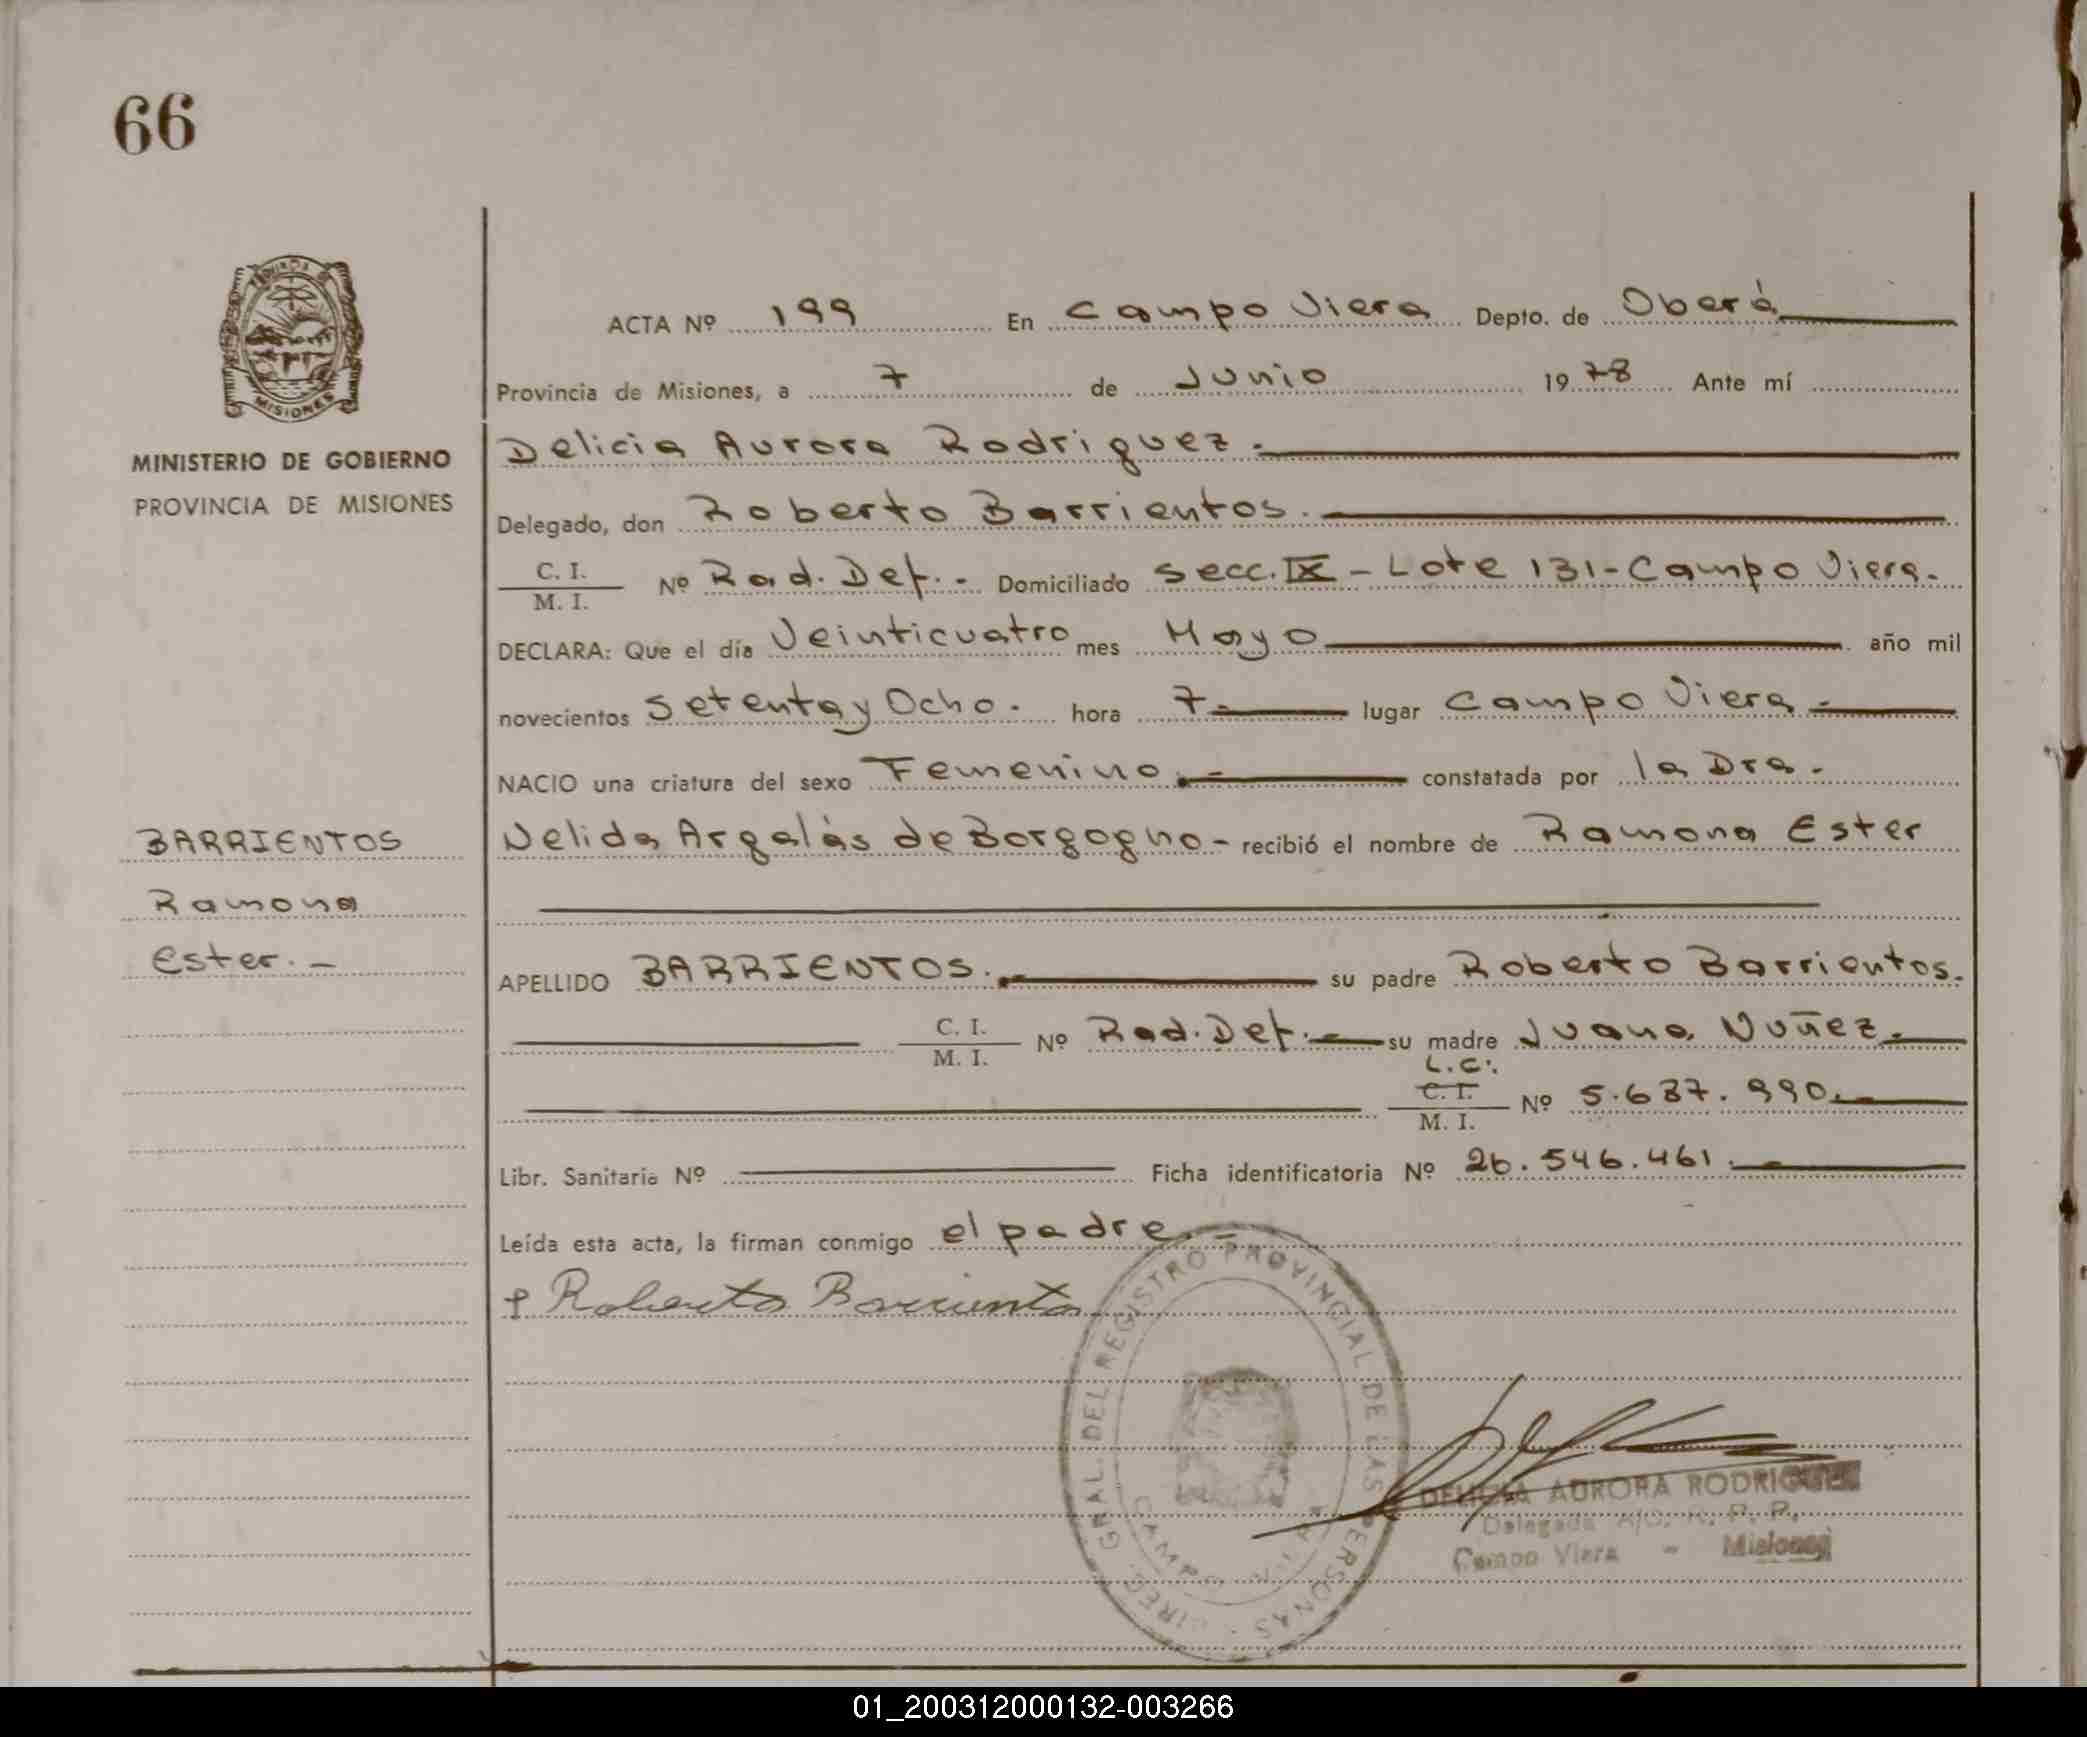 66
PROVINCIA DE
MISIONES
MINISTERIO DE GOBIERNO
PROVINCIA DE MISIONES
BARRIENTOS
Ramona
Ester.-
ACTA Nº 199 En Campo Viera Depto. de Oberá
Provincia de Misiones, a 7 de Junio 1978 Ante mí
Delicia Aurora Rodriguez.
Delegado, don Roberto Barrientos.
C. I.
M. I. Nº Rad. Def.- Domiciliado Secc. IX - Lote 131 - Campo Viera.
DECLARA: Que el día Veinticuatro mes Mayo año mil
novecientos Setenta y Ocho. hora 7- lugar Campo Viera.-
NACIO una criatura del sexo Femenino.- constatada por la Dra.
Nelida Argalás de Borgogno- recibió el nombre de Ramona Ester
APELLIDO BARRIENTOS.- su padre Roberto Barrientos.
C. I.
M. I. Nº Rad. Def.- su madre Juana Nuñez.-
L.C:
C. I.
M. I. Nº 5.637.990.-
Libr. Sanitaria Nº Ficha identificatoria Nº 26.546.461.-
Leída esta acta, la firman conmigo el padre.-
Roberto Barrientos
DIREC. GRAL. DEL REGISTRO PROVINCIAL DE LAS PERSONAS
CAMPO VIERA
DELICIA AURORA RODRIGUEZ
Delegada R. P. P.
Campo Viera - Misiones
01_200312000132-003266